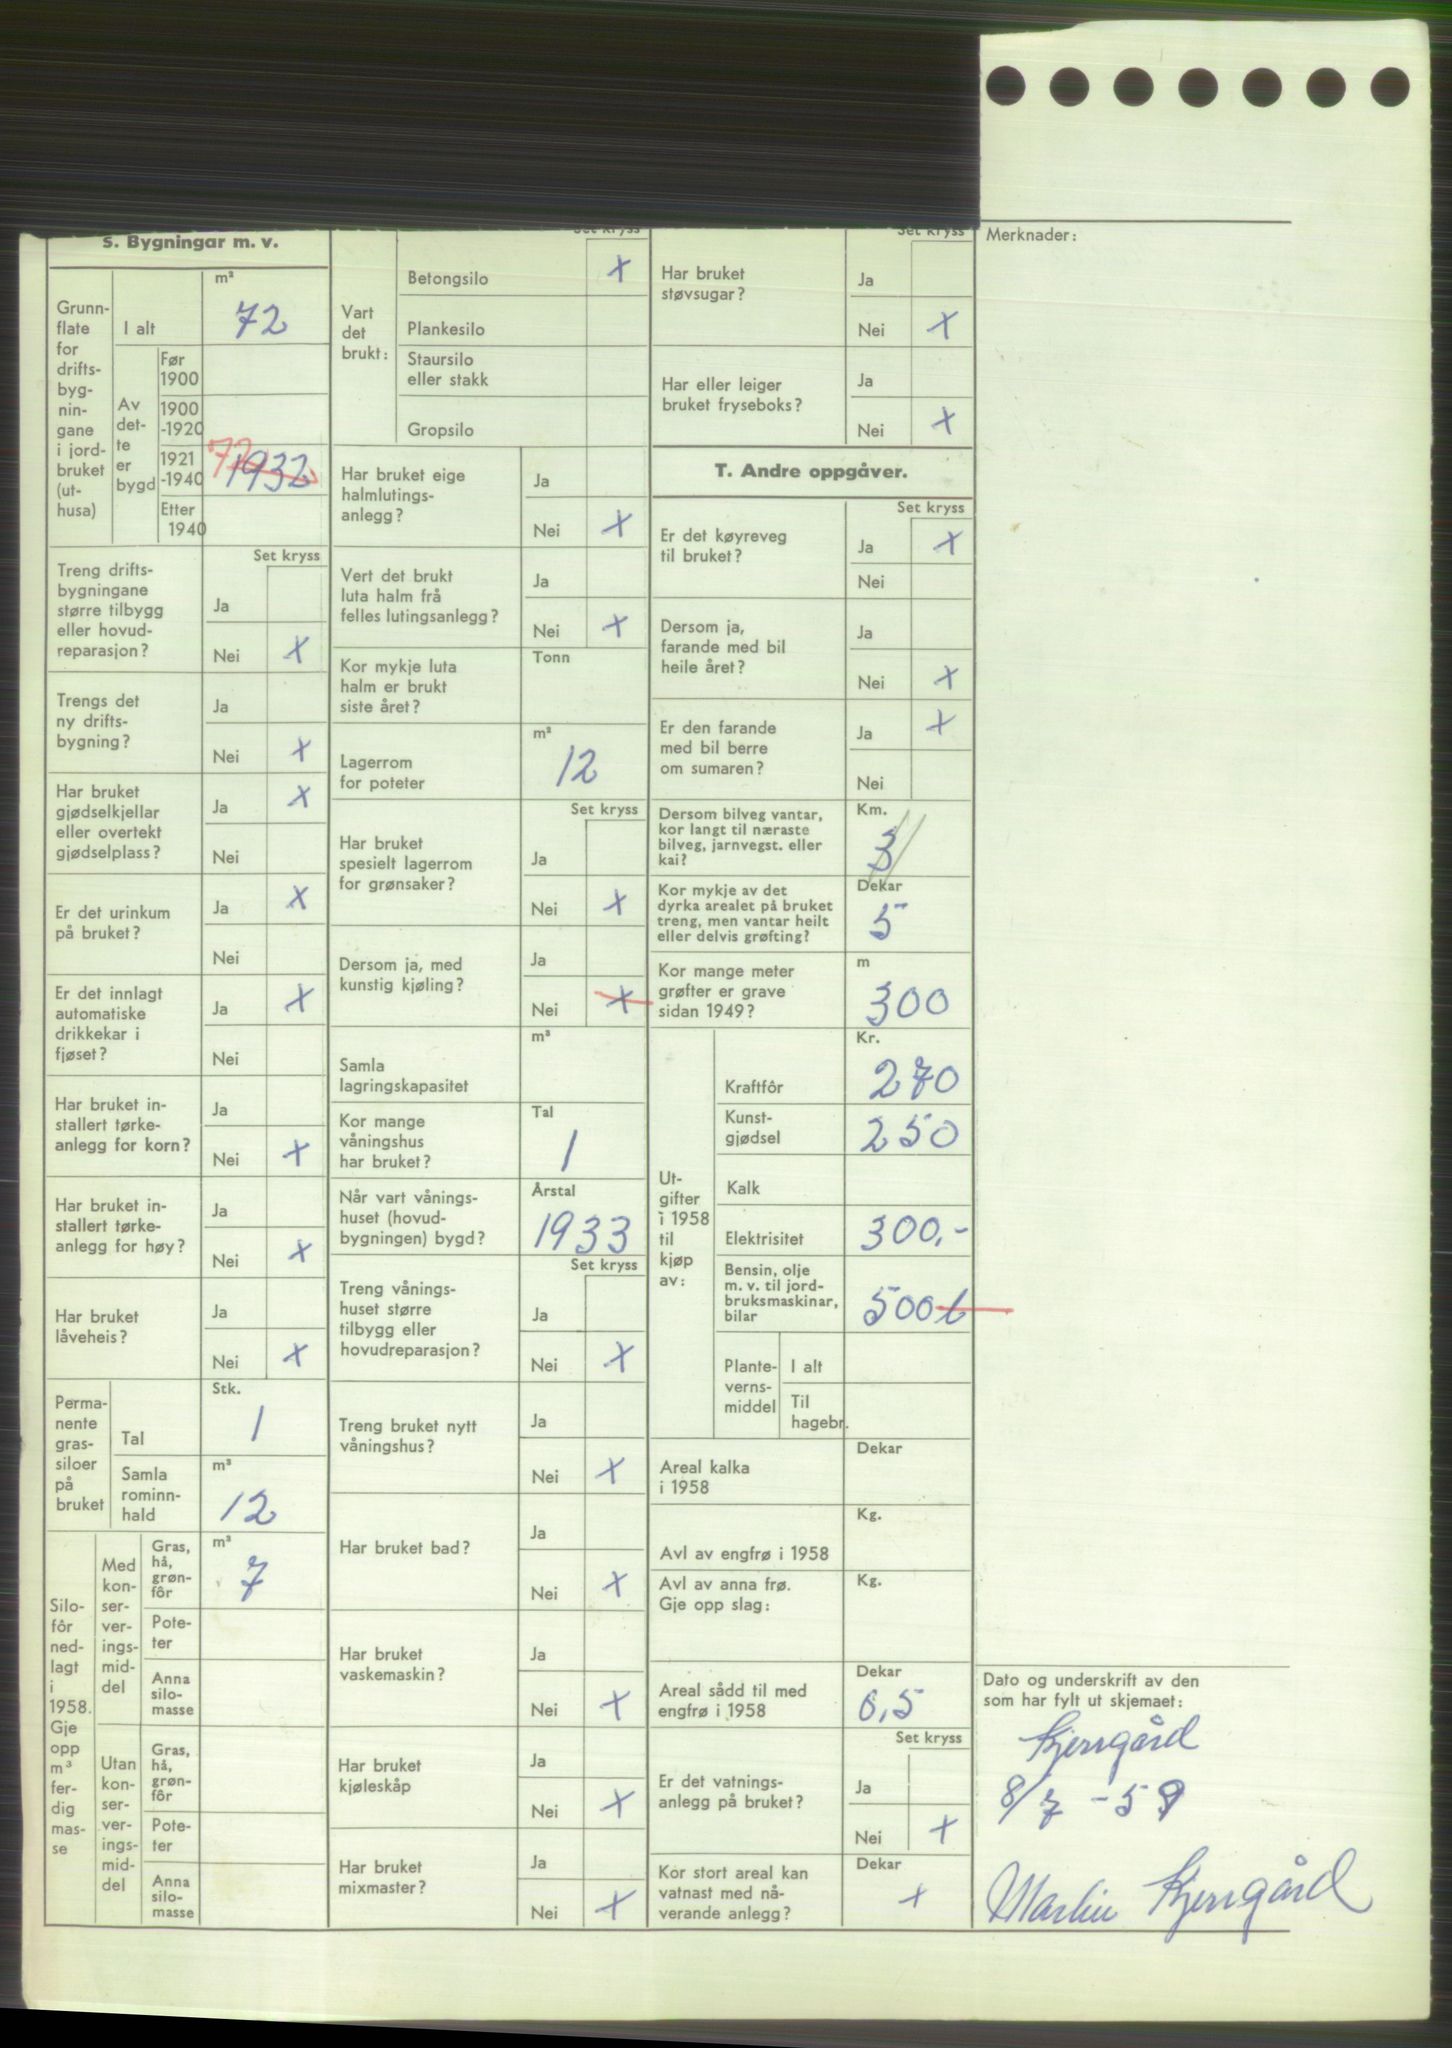 S. Bygningar m. v.
Grunn-
flate
for
drifts-
byg-
nin-
gane
i jord-
bruket
(ut-
husa)
I alt
m²
72
Av
det-
te
er
bygd
Før
1900
1900
-1920
1921
-1940
72
1932
Etter
1940
Set kryss
Treng drifts-
bygningane
større tilbygg
eller hovud-
reparasjon?
Ja
Nei X
Trengs det
ny drifts-
bygning?
Ja
Nei X
Har bruket
gjødselkjellar
eller overtekt
gjødselplass?
Ja X
Nei
Er det urinkum
på bruket?
Ja X
Nei
Er det innlagt
automatiske
drikkekar i
fjøset?
Ja X
Nei
Har bruket in-
stallert tørke-
anlegg for korn?
Ja
Nei X
Har bruket in-
stallert tørke-
anlegg for høy?
Ja
Nei X
Har bruket
låveheis?
Ja
Nei X
Perma-
nente
gras-
siloer
på
bruket
Stk.
Tal 1
Samla
rominn-
hald
m³
12
Silo-
fôr
ned-
lagt
i
1958.
Gje
opp
m³
fer-
dig
mas-
se
Med
kon-
ser-
ver-
ings-
mid-
del
Gras,
hå,
grøn-
fôr
m³
7
Pote-
ter
Anna
silo-
masse
Utan
kon-
ser-
ver-
ings-
mid-
del
Gras,
hå,
grøn-
fôr
Pote-
ter
Anna
silo-
masse
Set kryss
Vart
det
brukt:
Betongsilo X
Plankesilo
Staursilo
eller stakk
Gropsilo
Har bruket eige
halmlutings-
anlegg?
Ja
Nei X
Vert det brukt
luta halm frå
felles lutingsanlegg?
Ja
Nei X
Kor mykje luta
halm er brukt
siste året?
Tonn
Lagerrom
for poteter
m³
12
Set kryss
Har bruket
spesielt lagerrom
for grønsaker?
Ja
Nei X
Dersom ja, med
kunstig kjøling?
Ja
Nei X
Samla
lagringskapasitet
m³
Kor mange
våningshus
har bruket?
Tal
1
Når vart vånings-
huset (hovud-
bygningen) bygd?
Årstal
1933
Set kryss
Treng vånings-
huset større
tilbygg eller
hovudreparasjon?
Ja
Nei X
Treng bruket nytt
våningshus?
Ja
Nei X
Har bruket bad?
Ja
Nei X
Har bruket
vaskemaskin?
Ja
Nei X
Har bruket
kjøleskåp
Ja
Nei X
Har bruket
mixmaster?
Ja
Nei X
Set kryss
Har bruket
støvsugar?
Ja
Nei X
Har eller leiger
bruket fryseboks?
Ja
Nei X
T. Andre oppgåver.
Set kryss
Er det køyreveg
til bruket?
Ja X
Nei
Dersom ja,
farande med bil
heile året?
Ja
Nei X
Er den farande
med bil berre
om sumaren?
Ja X
Nei
Dersom bilveg vantar,
kor langt til næraste
bilveg, jarnvegst. eller
kai?
Km.
3
Kor mykje av det
dyrka arealet på bruket
treng, men vantar heilt
eller delvis grøfting?
Dekar
5
Kor mange meter
grøfter er grave
sidan 1949?
m
300
Ut-
gifter
i 1958
til
kjøp
av:
Kr.
Kraftfôr 270
Kunst-
gjødsel 250
Kalk
Elektrisitet 300,-
Bensin, olje
m. v. til jord-
bruksmaskinar,
bilar
500 l
Plante-
verns-
middel
I alt
Til
hagebr.
Areal kalka
i 1958
Dekar
Avl av engfrø i 1958
Kg.
Avl av anna frø.
Gje opp slag:
Kg.
Areal sådd til med
engfrø i 1958
Dekar
0,5
Set kryss
Er det vatnings-
anlegg på bruket?
Ja
Nei X
Kor stort areal kan
vatnast med nå-
verande anlegg?
Dekar
X
Merknader:
Dato og underskrift av den
som har fylt ut skjemaet:
Kjerrgård
8/7 - 59
Martin Kjerrgård